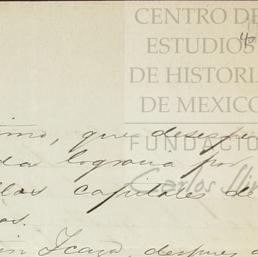 CENTRO DE
ESTUDIOS
DE HISTORIA
DE MEXICO
FUNDACIÓ
Carlos Sli
que desespe
da lograria por
llas capitales de
os.
Icaza, despues d